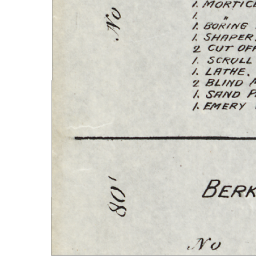 No
1. MORTICE
1. "
1. BORING
1. SHAPER.
2 CUT OFF
1. SCROLL
1. LATHE.
2 BLIND
1. SAND
1. EMERY
80'
BERK
No